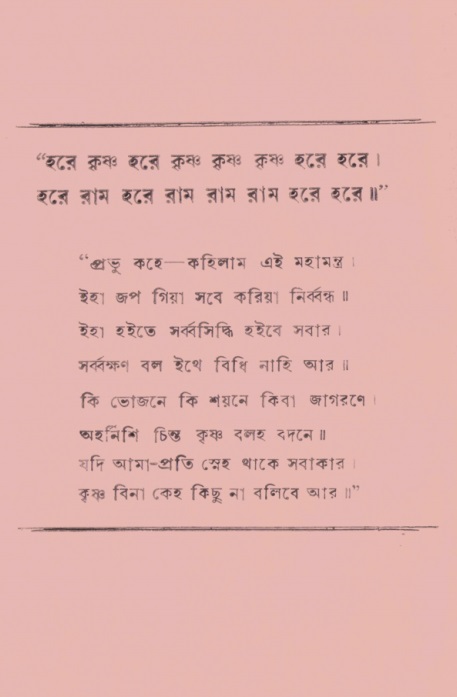 “হরে কৃষ্ণ হরে কৃষ্ণ কৃষ্ণ কৃষ্ণ হরে হরে।
হরে রাম হরে রাম রাম রাম হরে হরে॥”
“প্রভু কহে—কহিলাম এই মহামন্ত্র।
ইহা জপ গিয়া সবে করিয়া নির্ব্বন্ধ॥
ইহা হইতে সর্ব্বসিদ্ধি হইবে সবার।
সর্ব্বক্ষণ বল ইথে বিধি নাহি আর॥
কি ভোজনে কি শয়নে কিবা জাগরণে।
অহর্নিশি চিন্ত কৃষ্ণ বলহ বদনে॥
যদি আমা-প্রতি স্নেহ থাকে সবাকার।
কৃষ্ণ বিনা কেহ কিছু না বলিবে আর॥”